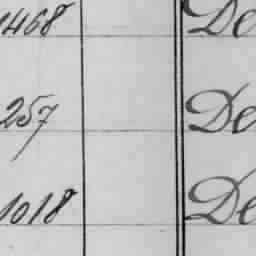 1468 De
257 De
1018 De